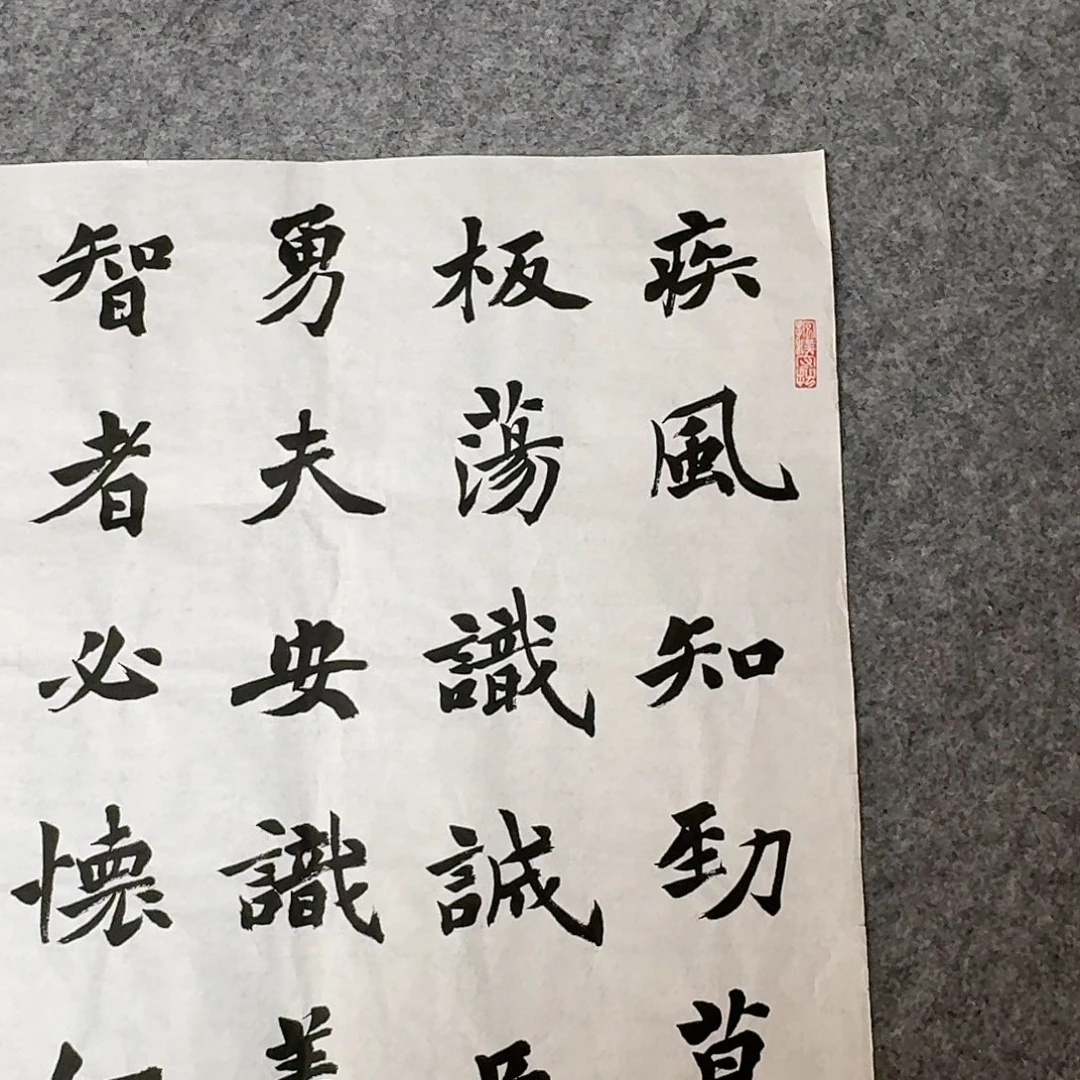 疾風知勁草
板蕩識誠
勇夫安識
智者必懐